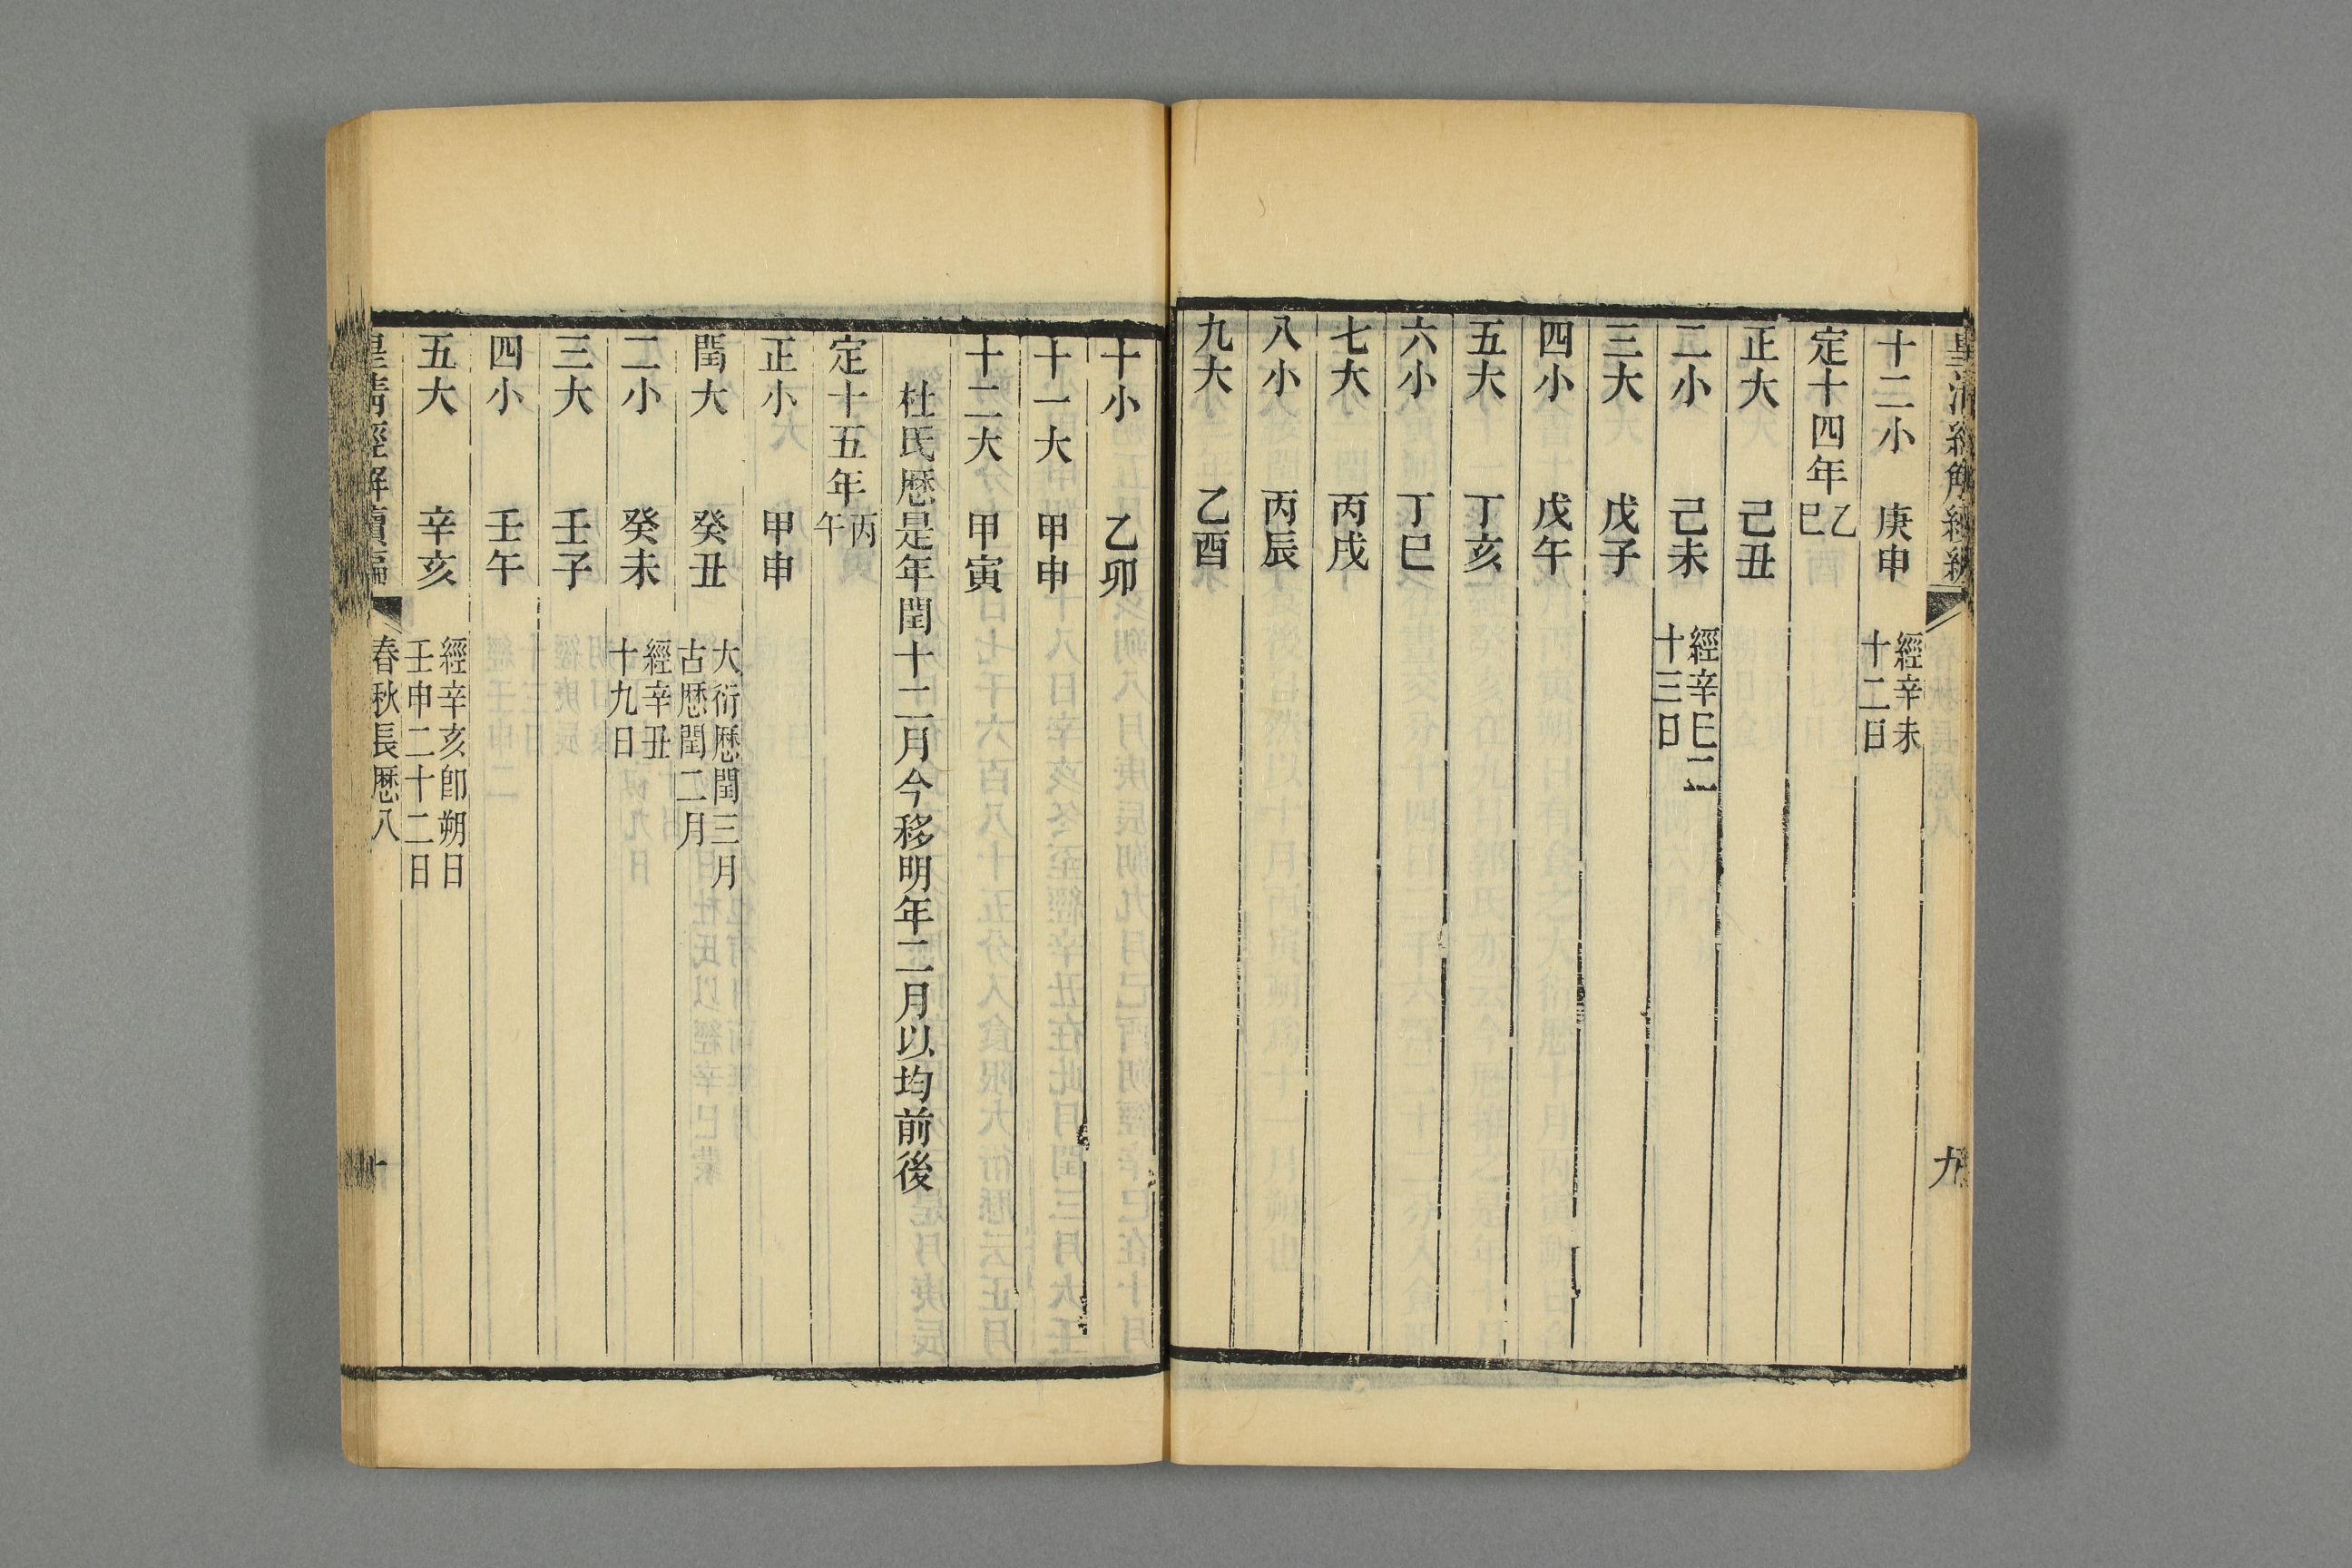 皇清經解續編
九
十二小　庚申　經辛未
十二日
定十四年乙
巳
正大　己丑
二小　己未　經辛巳二
十三日
三大　戊子
四小　戊午
五大　丁亥
六小　丁巳
七大　丙戌
八小　丙辰
九大　乙酉
十小　乙卯
十一大　甲申
十二大　甲寅
杜氏厯是年閏十二月今移明年二月以均前後
定十五年丙
午
正小　甲申
閏大　癸丑　大衍厯閏三月
古厯閏二月
二小　癸未　經辛丑
十九日
三大　壬子
四小　壬午
五大　辛亥　經辛亥卽朔日
壬申二十二日
皇清經解續編　春秋長厯八
十